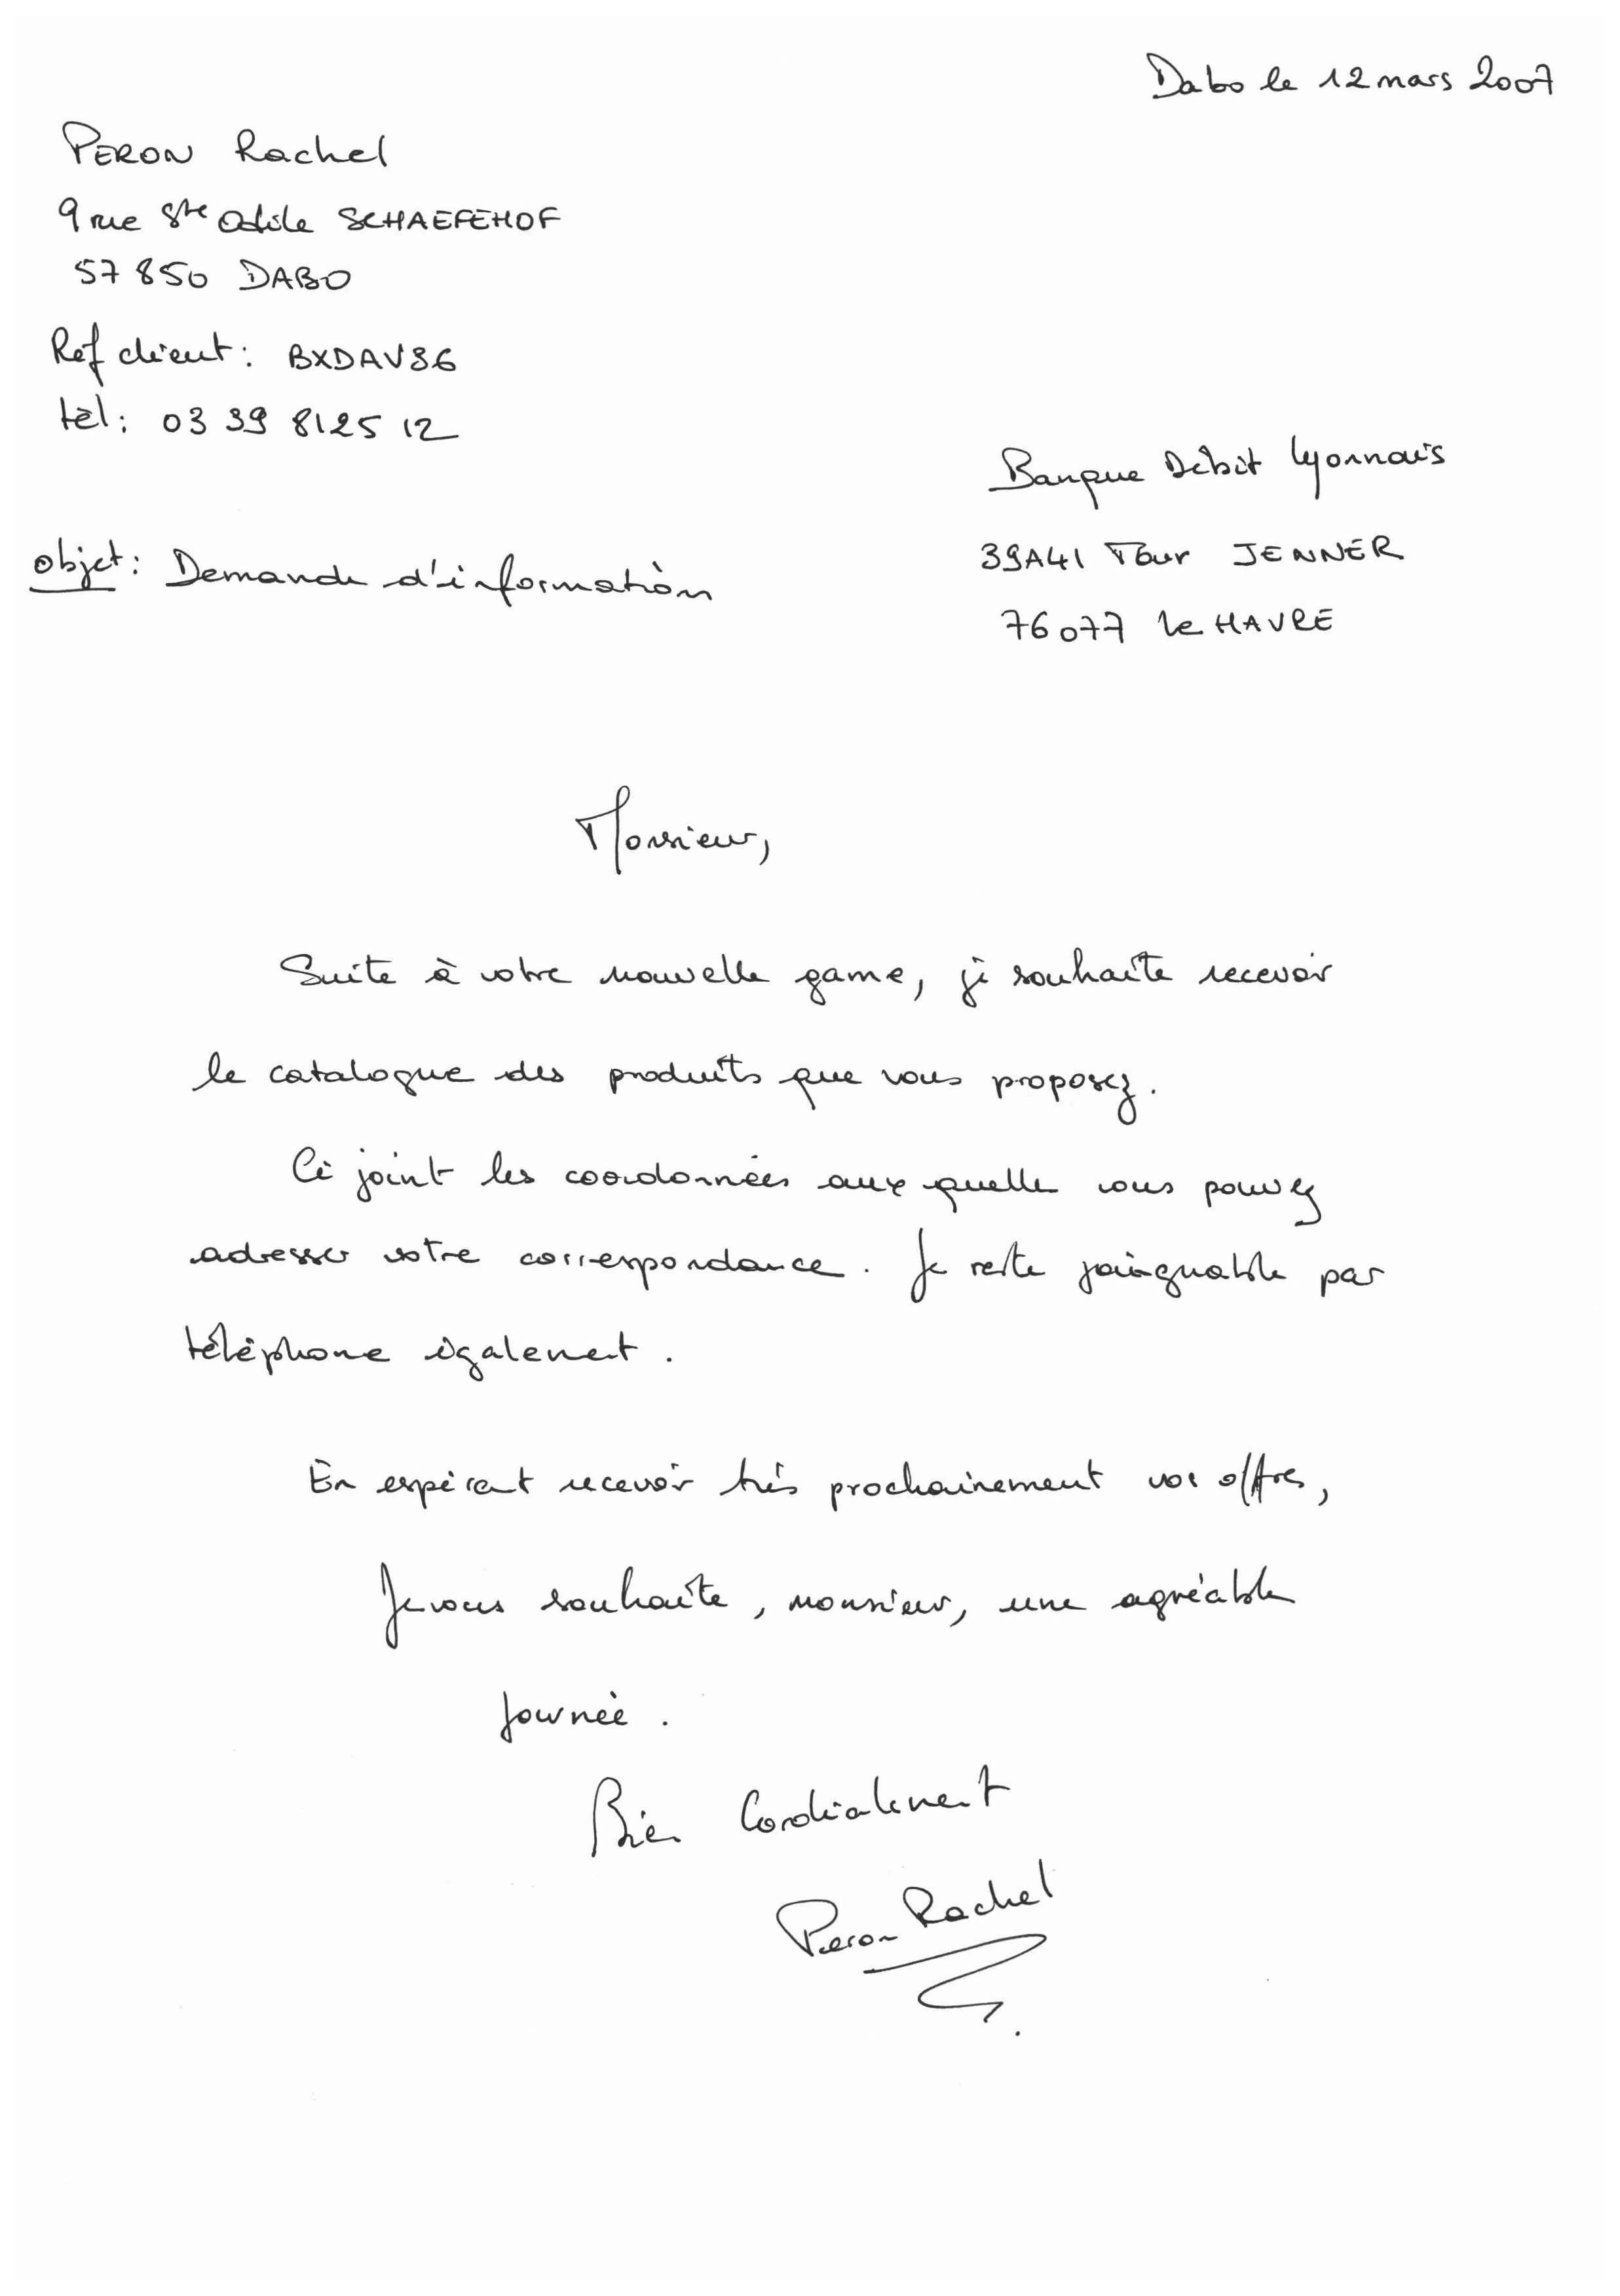 Dabo le 12 mars 2007
PERON Rachel
9 rue Ste Odile SCHAEFEHOF
57850 DABO
Ref client : BXDAV86
tél : 03 39 81 25 12
Banque Débit Lyonnais
39A41 Tour JENNER
76077 le HAVRE
objet : Demande d'information
Monsieur,
Suite à votre nouvelle game, je souhaite recevoir
le catalogue des produits que vous proposez.
Ci joint les coordonnées aux quelle vous pouvez
adresser votre correspondance. Je reste joingnable par
téléphone également.
En espérant recevoir très prochainement vos offres,
Je vous souhaite, monsieur, une agréable
journée.
Bien Cordialement
Peron Rachel